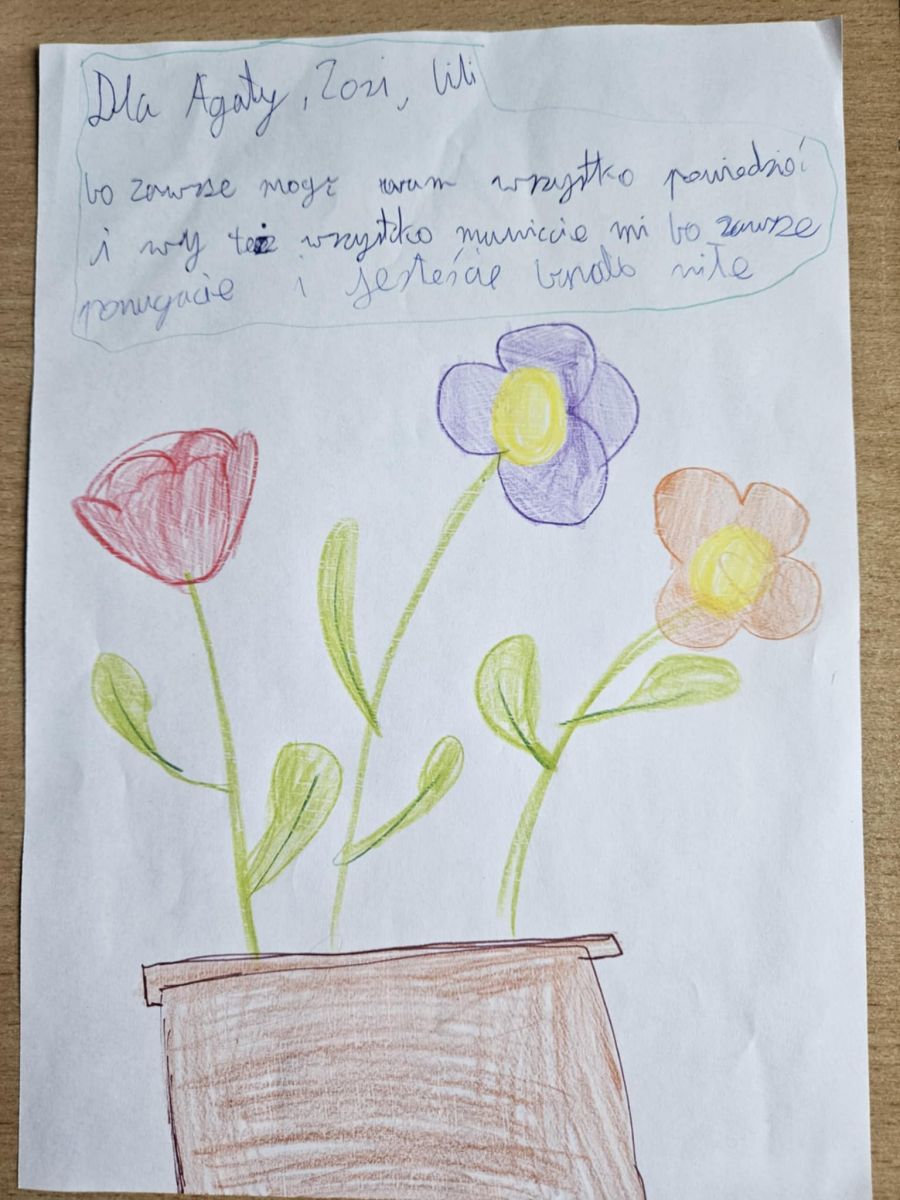 Dla Agaty, Zosi, Lili
bo zawsze mogę wam wszystko powiedzieć
i wy też wszystko mi bo zawsze
pomagacie i jesteście miłe